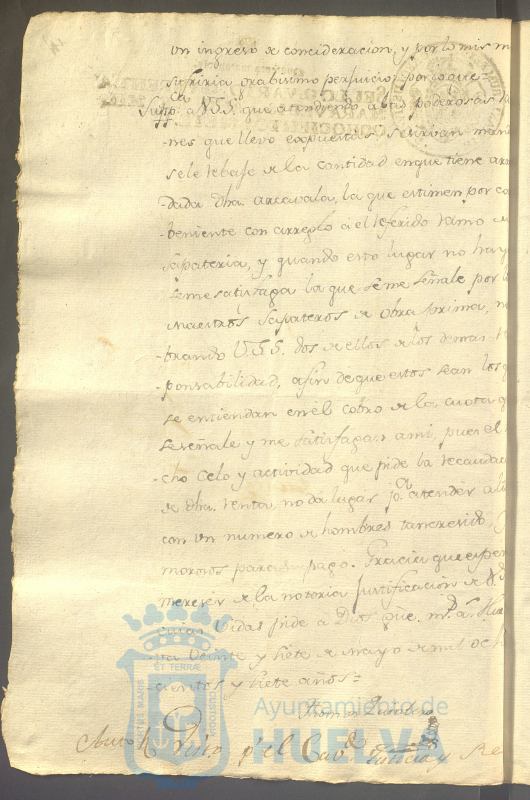 un ingreso de concideracion, y por lo mismo
sufriria grabisimo perjuicio, por lo que
Supp.ca a V.S.S. que atendiendo a tan poderosas
nes que llevo expuestas se sirvan
se le rebaje de la cantidad en que tiene
dada dha. arcavala, la que estimen por
beniente con arreglo á el referido ramo de
sapateria, y quando esto lugar no haya
se me satisfaga la que se me señale por los
maestros sapateros de obra prima,
brando V.S.S. dos de ellos de los de mas
ponsabilidad, a fin de que estos sean los q
se entiendan en el cobro de la cuota q
se señale y me satisfagan a mi, pues el
cho celo y actividad que pide la recaudac
de dha. renta, no da lugar p.a atender a
con un numero de hombres tan crecido,
morosos para su pago. Gracia que espe
merecer de la notoria justificacion de
vidas pide a Dios gûe. m.s a.s Hue
va veinte y siete de mayo de mil och
cientos y siete años=
Thomas
Auto
Ayuntamiento de
HUELVA